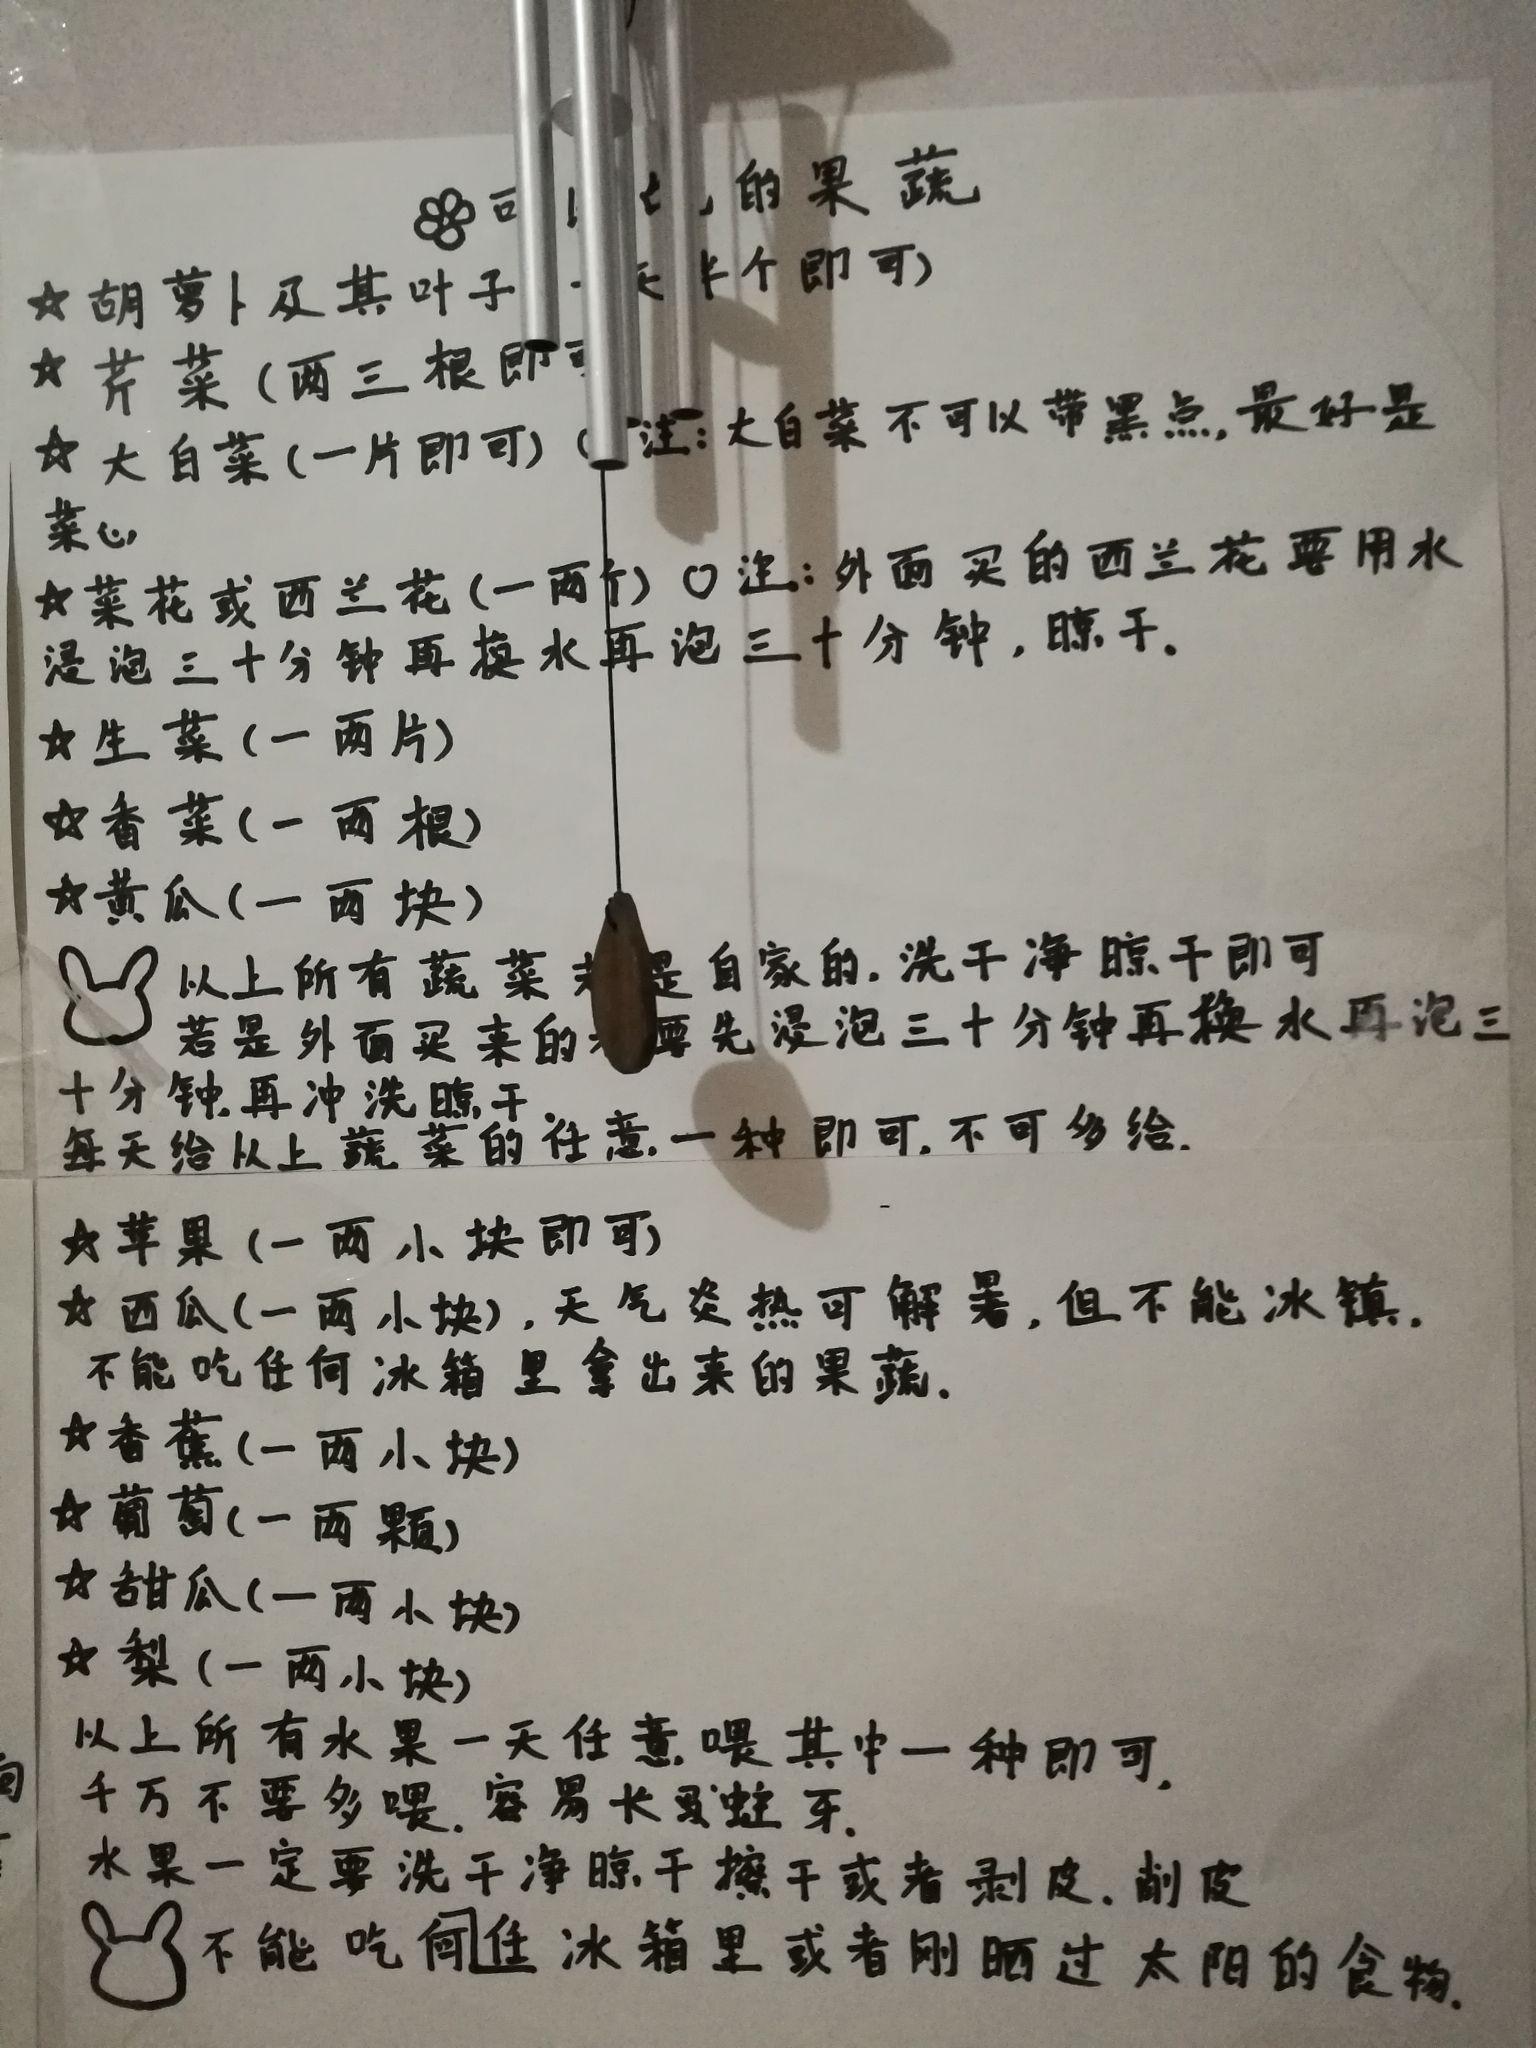 的果蔬
☆胡萝卜及其叶子 个即可)
☆芹菜(两三根即可
☆大白菜(一片即可)( 注:大白菜不可以带黑点,最好是
菜心
☆菜花或西兰花(一两个)♡注:外面买的西兰花要用水
浸泡三十分钟再换水再泡三十分钟,晾干.
☆生菜(一两片)
☆香菜(一两根)
☆黄瓜(一两块)
以上所有蔬菜 是自家的.洗干净晾干即可
若是外面买来的 要先浸泡三十分钟再换水再泡三
十分钟.再冲洗晾干.
每天给以上蔬菜的任意一种即可.不可多给.
☆苹果(一两小块即可)
☆西瓜(一两小块),天气炎热可解暑,但不能冰镇.
不能吃任何冰箱里拿出来的果蔬.
☆香蕉(一两小块)
☆葡萄(一两颗)
☆甜瓜(一两小块)
☆梨(一两小块)
以上所有水果一天任意喂其中一种即可.
千万不要多喂.容易长蛀牙.
水果一定要洗干净晾干擦干或者剥皮.削皮
不能吃何任冰箱里或者刚晒过太阳的食物.